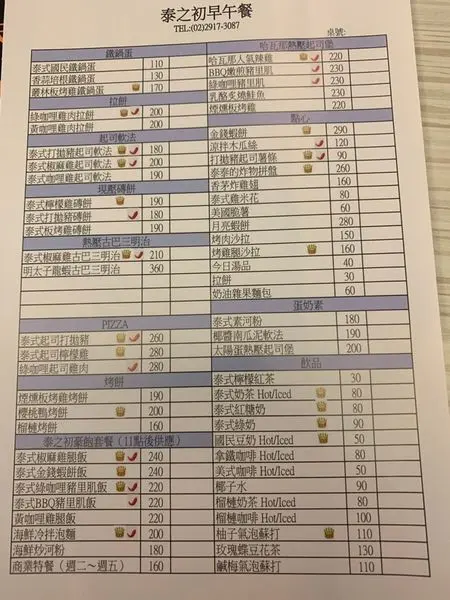 泰之初早午餐
TEL:(02)2917-3087
桌號:
鐵鍋蛋
泰式國民鐵鍋蛋 110
香蒜培根鐵鍋蛋 130
叢林板烤雞鐵鍋蛋 170
拉餅
綠咖哩雞肉拉餅 200
黃咖哩雞肉拉餅 200
起司軟法
泰式打拋豬起司軟法 180
泰式椒麻雞起司軟法 200
泰式咖哩起司軟法 190
現壓磚餅
泰式檸檬雞磚餅 190
泰式打拋豬磚餅 180
泰式板烤雞磚餅 190
熱壓古巴三明治
泰式椒麻雞古巴三明治 210
明太子龍蝦古巴三明治 360
PIZZA
泰式起司打拋豬 260
泰式起司檸檬雞 280
綠咖哩起司雞肉 280
烤餅
煙燻板烤雞烤餅 190
櫻桃鴨烤餅 200
榴槤烤餅 160
泰之初豪飽套餐（11點後供應）
泰式椒麻雞腿飯 240
泰式金錢蝦餅飯 240
泰式綠咖哩豬里肌飯 220
泰式BBQ豬里肌飯 220
黃咖哩雞腿飯 220
海鮮冷拌泡麵 200
海鮮炒河粉 180
商業特餐（週二～週五） 160
哈瓦那熱壓起司堡
哈瓦那人氣辣雞 220
BBQ嫩煎豬里肌 230
綠咖哩豬里肌 230
乳酪炙燒鮭魚 230
煙燻板烤雞 220
點心
金錢蝦餅 290
涼拌木瓜絲 120
打拋豬起司薯條 90
泰泰的炸物拼盤 260
香茅炸雞翅 160
泰式雞米花 80
美國脆薯 60
月亮蝦餅 280
烤肉沙拉 150
烤雞腿沙拉 160
今日湯品 40
拉餅 30
奶油雜果麵包 60
蛋奶素
泰式素河粉 180
椰醬南瓜泥軟法 190
太陽蛋熱壓起司堡 200
飲品
泰式檸檬紅茶 30
泰式奶茶 Hot/Iced 80
泰式紅糖奶 80
泰式綠奶 90
國民豆奶 Hot/Iced 50
拿鐵咖啡 Hot/Iced 80
美式咖啡 Hot/Iced 50
椰子水 90
榴槤奶茶 Hot/Iced 80
榴槤咖啡 Hot/Iced 100
柚子氣泡蘇打 110
玫瑰蝶豆花茶 130
鹹梅氣泡蘇打 110